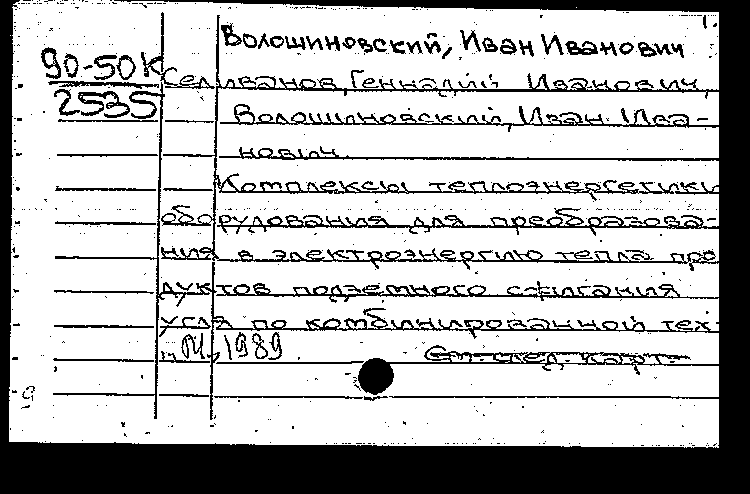 1.
Волошиновский, Иван Иванович
90-50К
2535
Селиванов, Геннадий Иванович,
Волошиновский, Иван Ива-
нович
Комплексы теплоэнергетики
оборудования для преобразова-
ния в электроэнергию тепла про
дуктов подземного сжигания
угля по комбинированной тех-
М., 1989
См. след. карт.
9